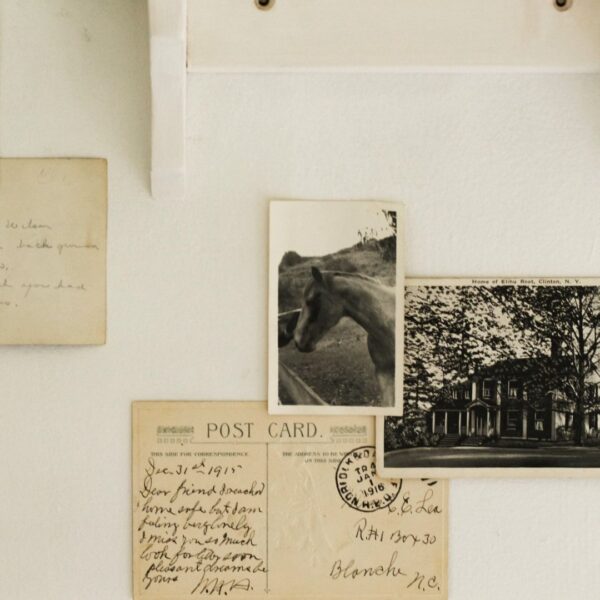 Wilson
back
you had
Home of Elihu Root, Clinton, N. Y.
POST CARD.
THIS SIDE FOR CORRESPONDENCE
THE ADDRESS TO BE
ON THIS
Dec. 31st 1915
Dear friend I reached
home safe but I am
feling very lonely
I miss you so much
look for  soon
pleasant dreams be
yours
NORFOLK & D
TR 4
JAN
1
1916
R.P.O.
C. E. Lea
R#1 Box 30
Blanche
N.C.